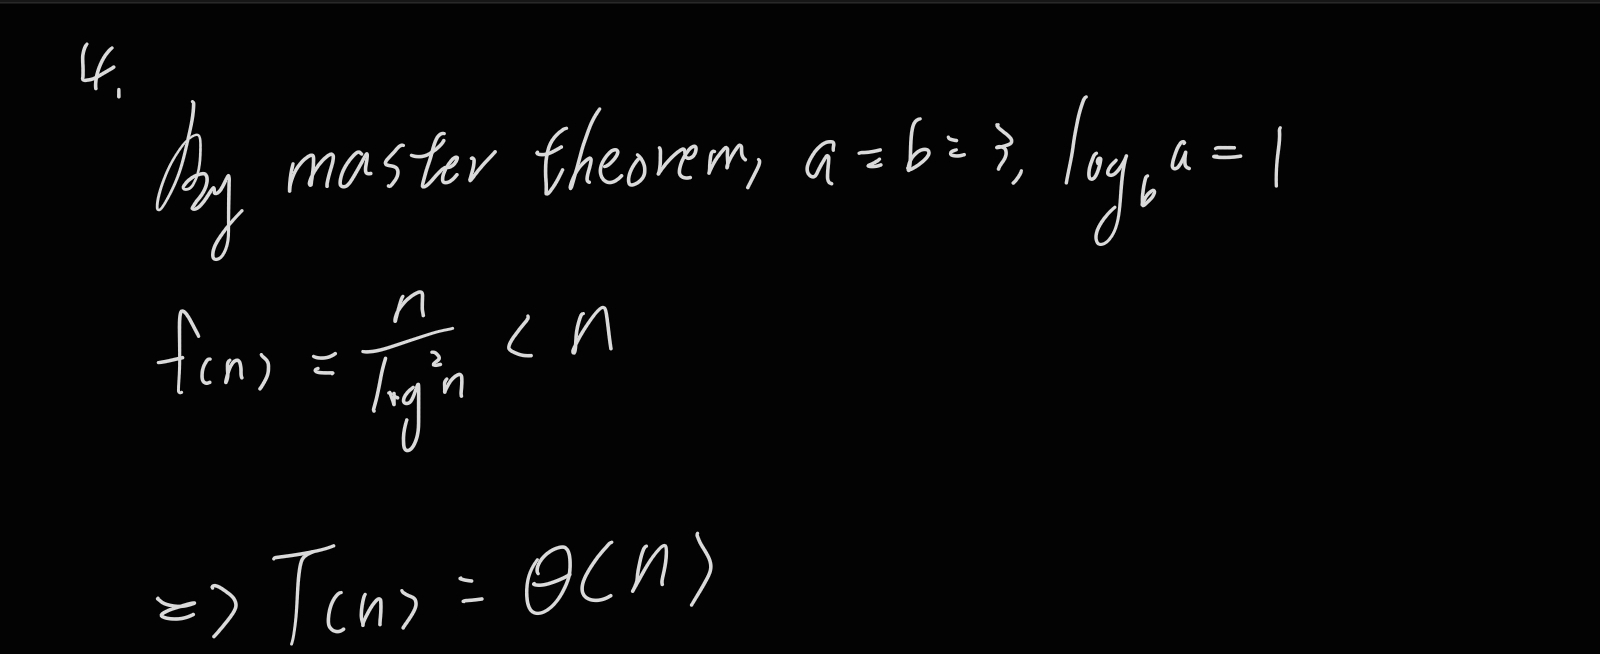 4.
By master theorem, a = b = 3, log_b a = 1
f(n) = n / log²n < n
=> T(n) = Θ(n)